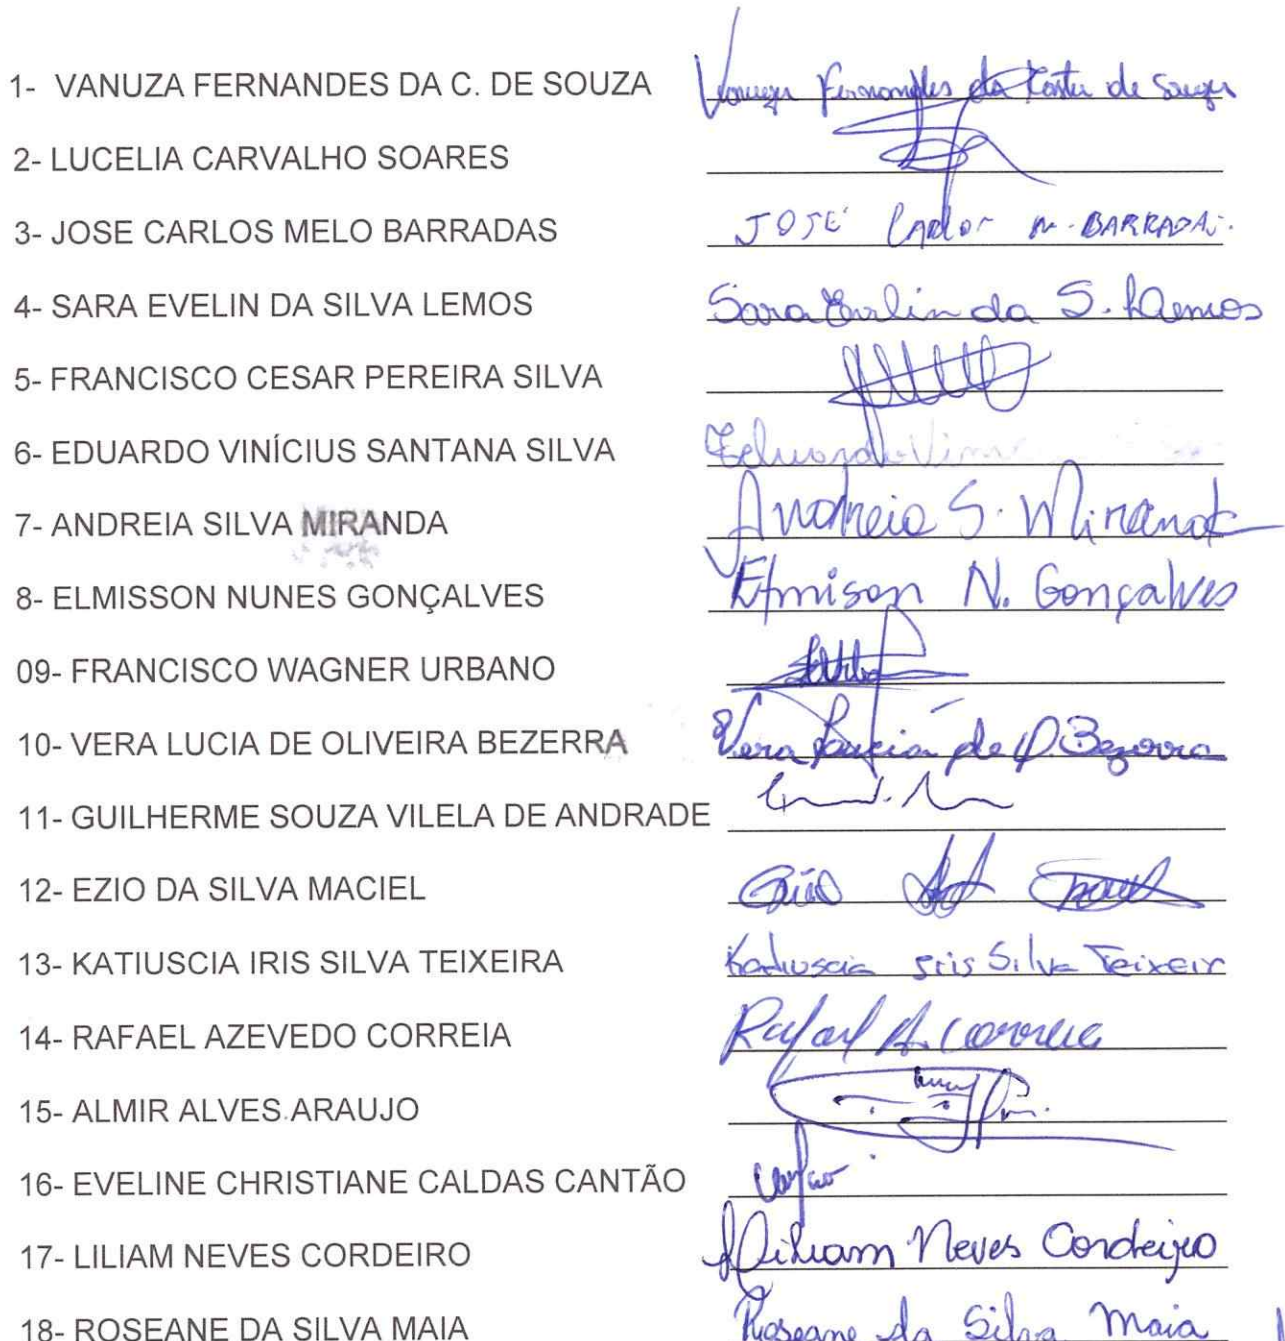 1- VANUZA FERNANDES DA C. DE SOUZA Vanuza Fernandes da Costa de Souza
2- LUCELIA CARVALHO SOARES
3- JOSE CARLOS MELO BARRADAS JOSÉ CARLOS M. BARRADAS.
4- SARA EVELIN DA SILVA LEMOS Sara Evelin da S. Lemos
5- FRANCISCO CESAR PEREIRA SILVA
6- EDUARDO VINÍCIUS SANTANA SILVA Eduardo Vini
7- ANDREIA SILVA MIRANDA Andreia S. Miranda
8- ELMISSON NUNES GONÇALVES Elmison N. Gonçalves
09- FRANCISCO WAGNER URBANO
10- VERA LUCIA DE OLIVEIRA BEZERRA Vera Lucia de O. Bezerra
11- GUILHERME SOUZA VILELA DE ANDRADE
12- EZIO DA SILVA MACIEL
13- KATIUSCIA IRIS SILVA TEIXEIRA Katiuscia Iris Silva Teixeir
14- RAFAEL AZEVEDO CORREIA Rafael A. Correia
15- ALMIR ALVES ARAUJO
16- EVELINE CHRISTIANE CALDAS CANTÃO
17- LILIAM NEVES CORDEIRO Liliam Neves Cordeiro
18- ROSEANE DA SILVA MAIA Roseane da Silva Maia